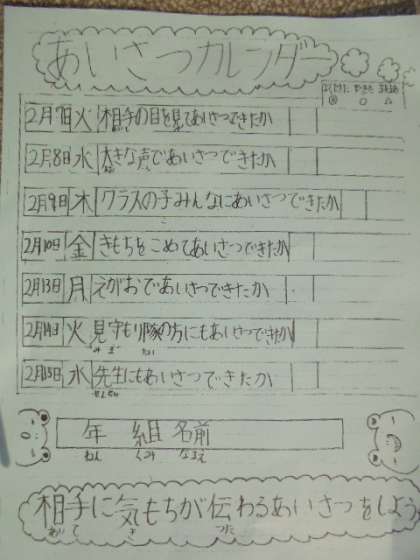 あいさつカレンダー
◎ ○ △
2月7日 火 相手の目を見てあいさつできたか
2月8日 水 大きな声であいさつできたか
2月9日 木 クラスの子みんなにあいさつできたか
2月10日 金 きもちをこめてあいさつできたか
2月13日 月 えがおであいさつできたか
2月14日 火 見守もり隊の方にもあいさつできたか
2月15日 水 先生にもあいさつできたか
年 組 名前
ねん くみ なまえ
相手に気もちが伝わるあいさつをしよう
あいて き つた